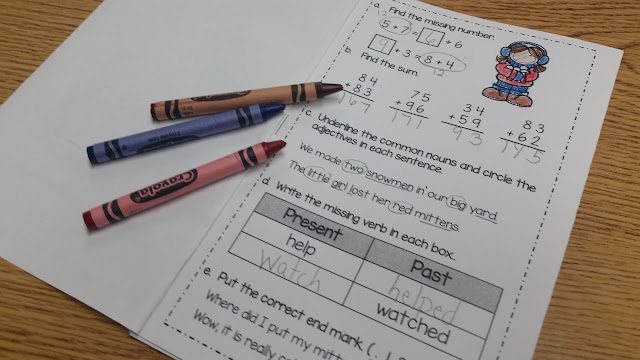 a. Find the missing number.
12
5 + 7 = 6 + 6
9 + 3 = 8 + 4
12
b. Find the sum.
84 75 34 83
+83 +96 +59 +62
167 171 93 145
c. Underline the common nouns and circle the
adjectives in each sentence.
We made two snowmen in our big yard.
The little girl lost her red mittens.
d. Write the missing verb in each box.
Present Past
help helped
watch watched
e. Put the correct end mark. (. !
Where did I put my mitt
Wow, it is really
Crayola